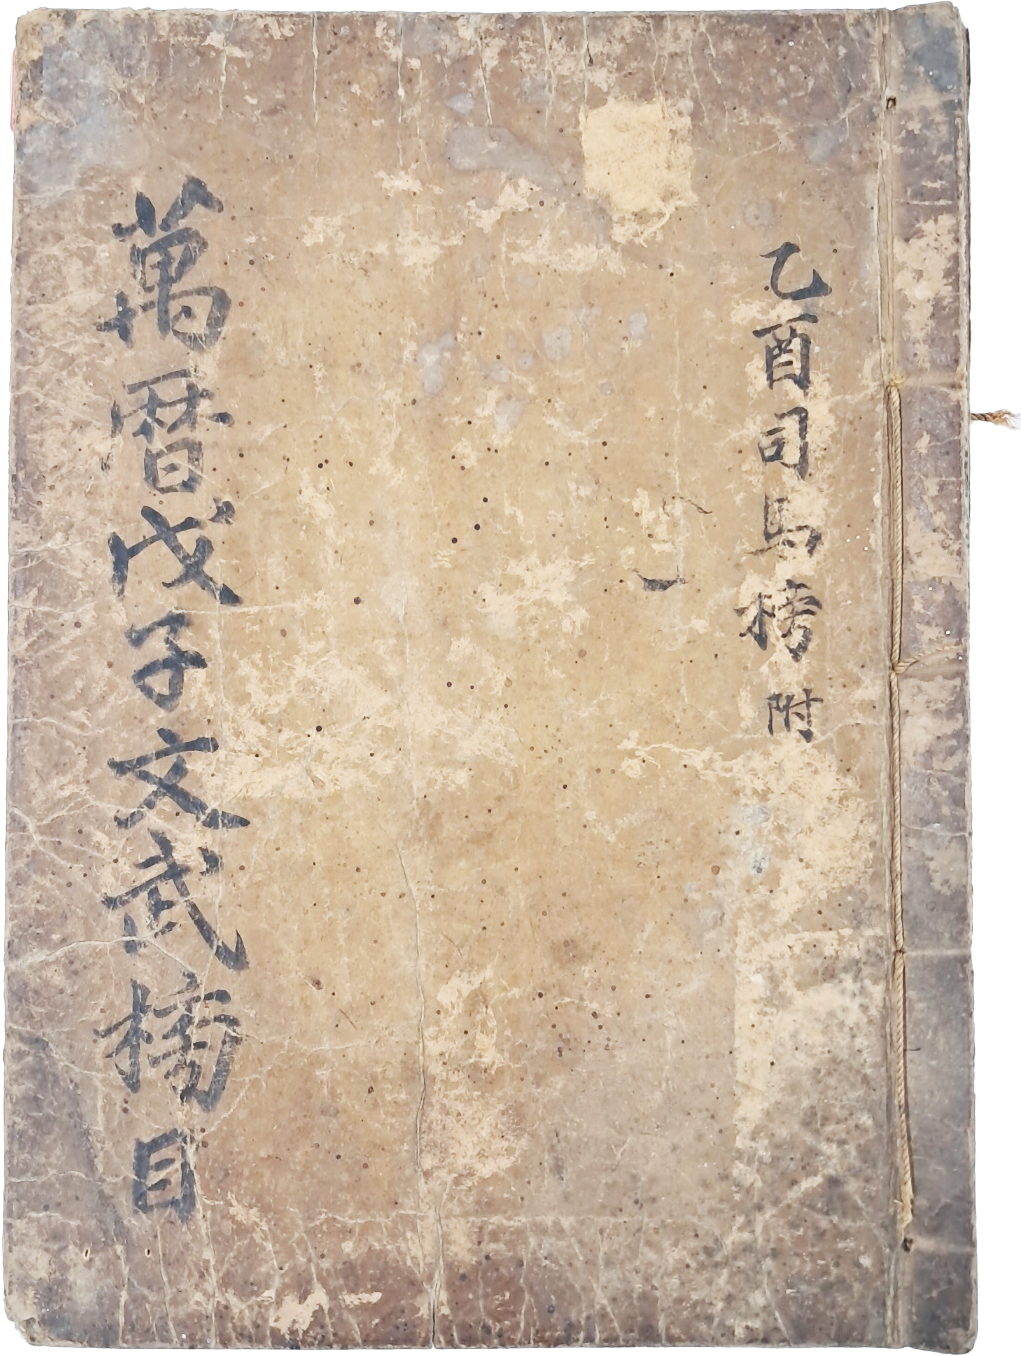 乙酉司馬榜附
萬暦戊子文武榜目